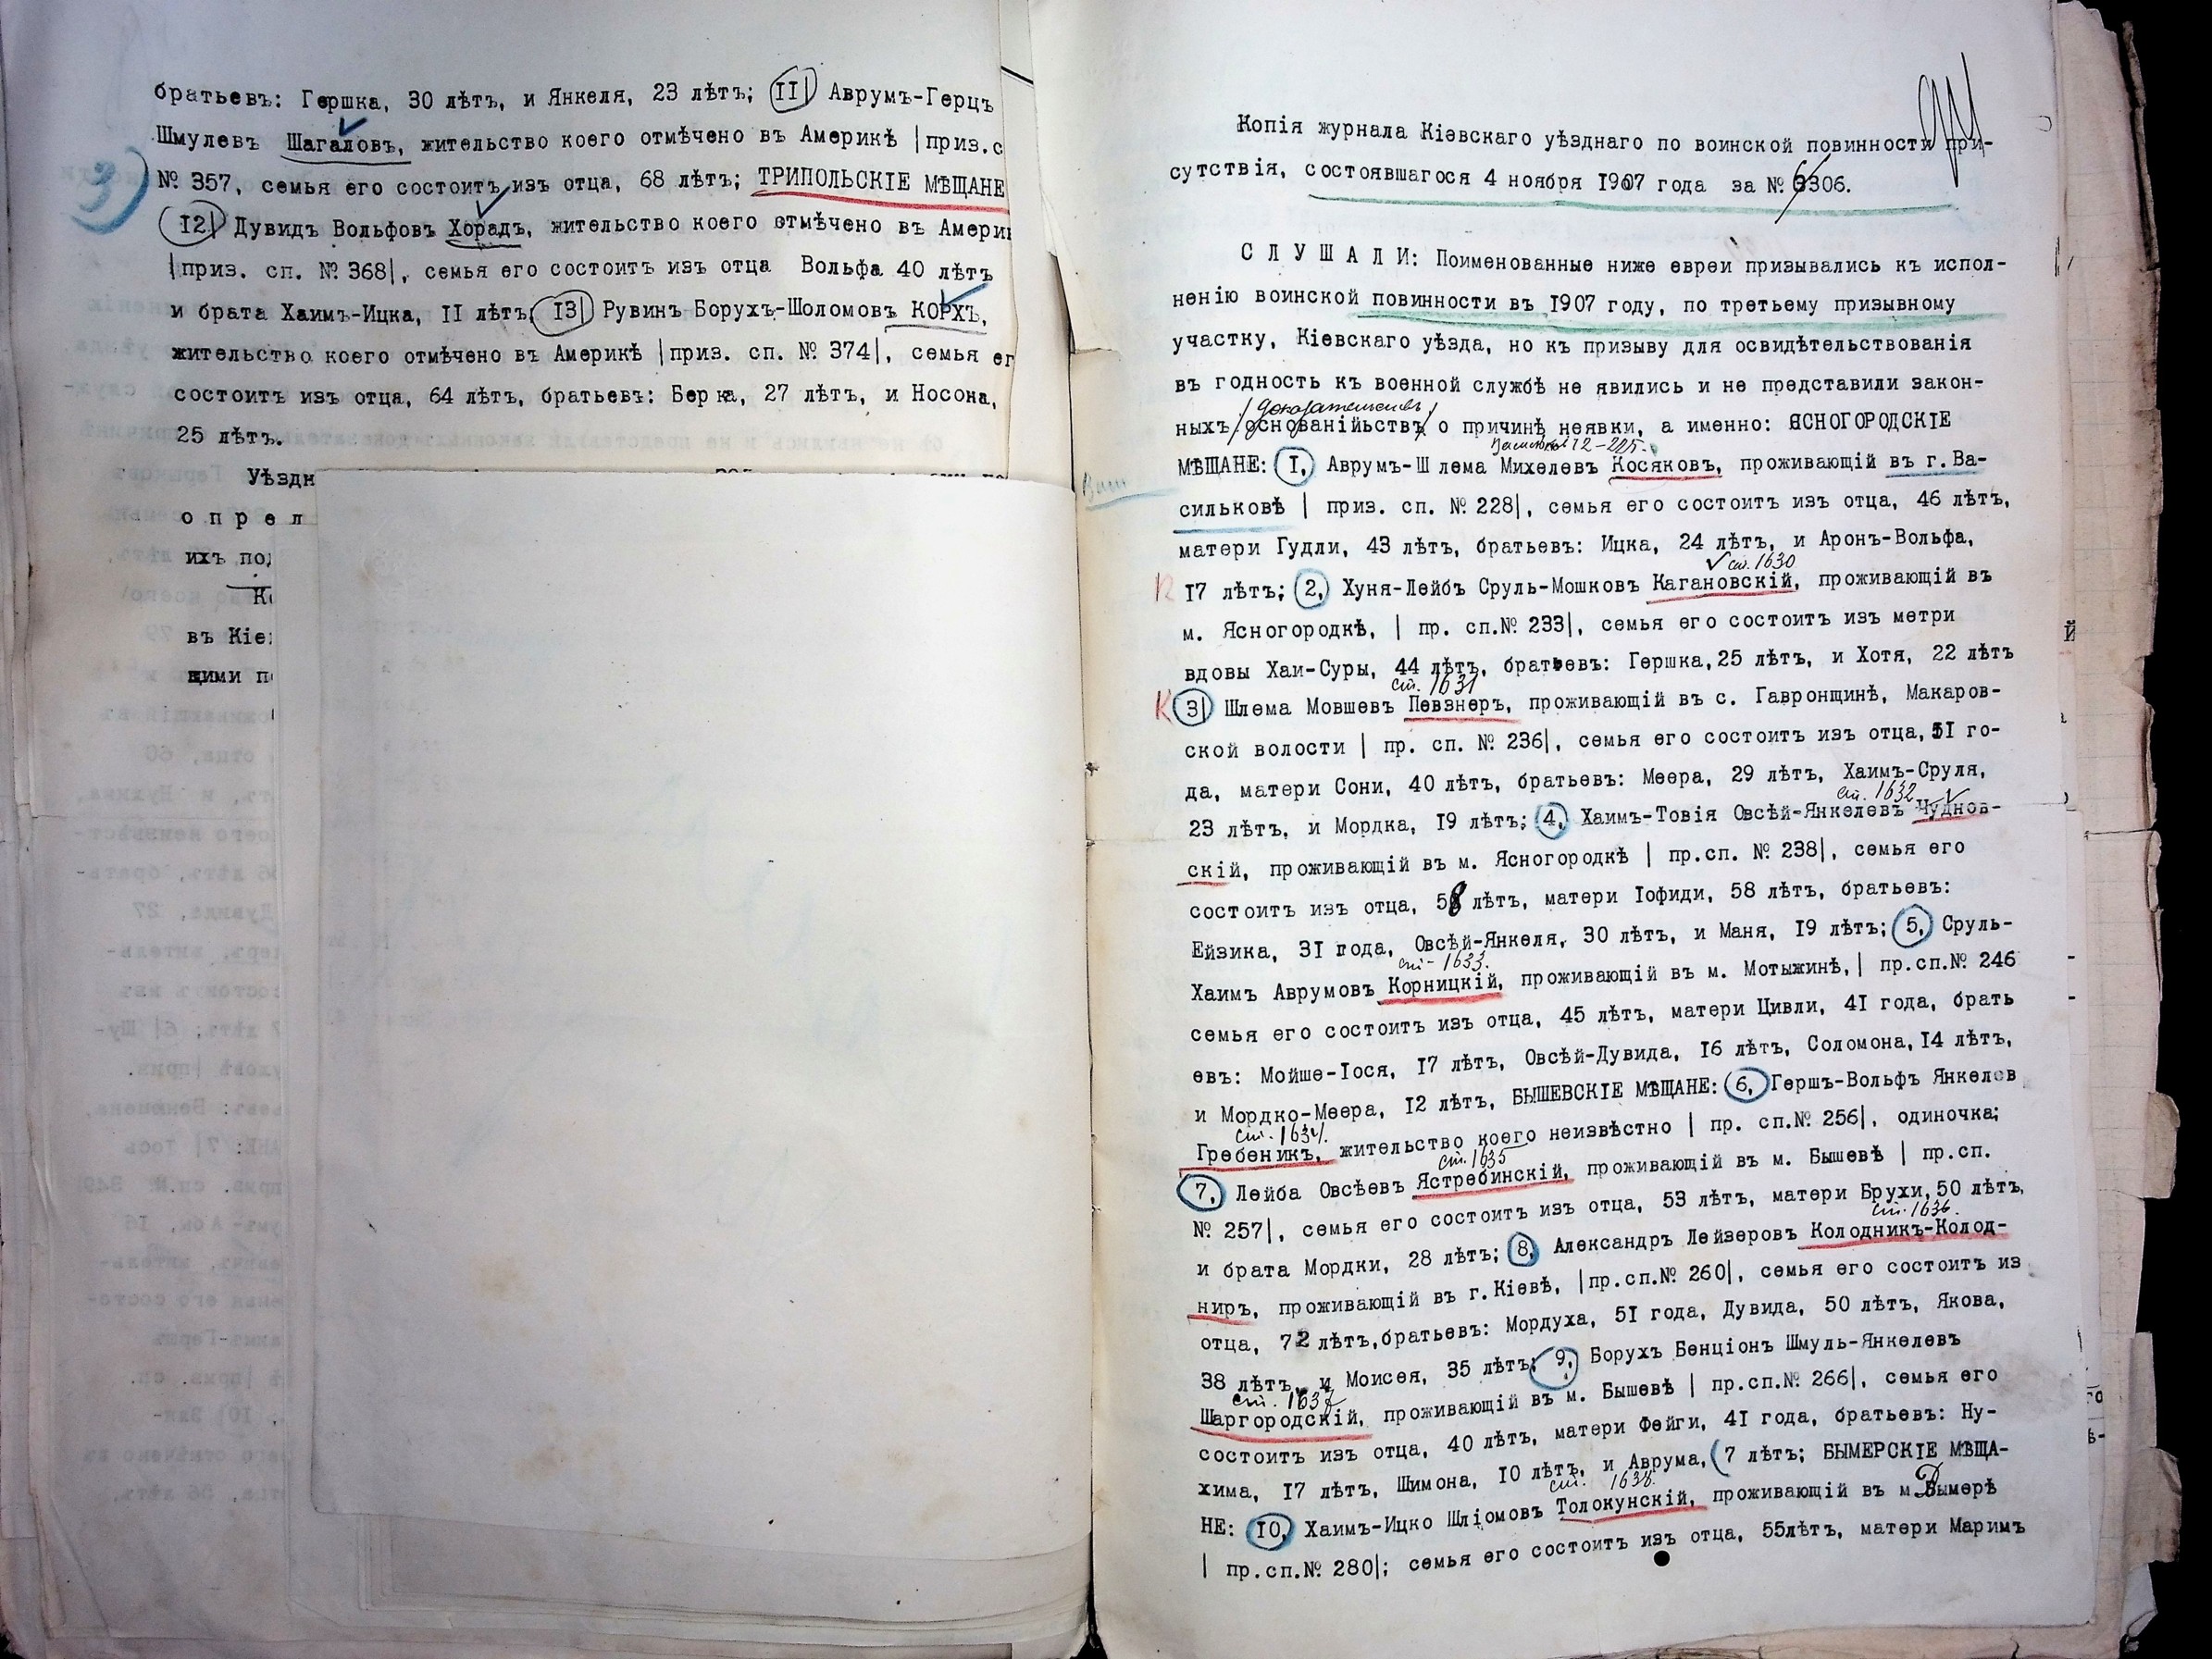 братьевъ: Гершка, 30 лѣтъ, и Янкеля, 23 лѣтъ; II| Аврумъ-Герцъ
Шмулевъ Шагаловъ, жительство коего отмѣчено въ Америкѣ |приз.с
3)
№ 357, семья его состоитъ изъ отца, 68 лѣтъ; ТРИПОЛЬСКІЕ МѢЩАНЕ
I2| Дувидъ Вольфовъ Хорадъ, жительство коего отмѣчено въ Амери
|приз. сп. № 368|, семья его состоитъ изъ отца Вольфа 40 лѣтъ
и брата Хаимъ-Ицка, II лѣтъ I3| Рувинъ Борухъ-Шоломовъ КОРХЪ,
жительство коего отмѣчено въ Америкѣ |приз. сп. № 374|, семья ег
состоитъ изъ отца, 64 лѣтъ, братьевъ: Берка, 27 лѣтъ, и Носона,
25 лѣтъ.
Уѣздн
о п р е л
ихъ под
въ Кіе
щими п
Копія журнала Кіевскаго уѣзднаго по воинской повинности при-
сутствія, состоявшагося 4 ноября I907 года за № 6306.
С Л У Ш А Л И: Поименованные ниже евреи призывались къ испол-
ненію воинской повинности въ I907 году, по третьему призывному
участку, Кіевскаго уѣзда, но къ призыву для освидѣтельствованія
въ годность къ военной службѣ не явились и не представили закон-
доказательствъ
ныхъ основанійьствъ о причинѣ неявки, а именно: ЯСНОГОРОДСКІЕ
МѢЩАНЕ: I, Аврумъ-Шлема Михелевъ Косяковъ, проживающій въ г. Ва-
сильковѣ | приз. сп. № 228|, семья его состоитъ изъ отца, 46 лѣтъ,
матери Гудли, 43 лѣтъ, братьевъ: Ицка, 24 лѣтъ, и Аронъ-Вольфа,
ст. 1630
I7 лѣтъ; 2, Хуня-Лейбъ Сруль-Мошковъ Кагановскій, проживающій въ
м. Ясногородкѣ, | пр. сп.№ 233|, семья его состоитъ изъ метри
вдовы Хаи-Суры, 44 лѣтъ, братьевъ: Гершка,25 лѣтъ, и Хотя, 22 лѣтъ
ст. 1631
К 3| Шлема Мовшевъ Певзнеръ, проживающій въ с. Гавронщинѣ, Макаров-
ской волости | пр. сп. № 236|, семья его состоитъ изъ отца, 5I го-
да, матери Сони, 40 лѣтъ, братьевъ: Меера, 29 лѣтъ, Хаимъ-Сруля,
ст. 1632
23 лѣтъ, и Мордка, I9 лѣтъ; 4, Хаимъ-Товія Овсѣй-Янкелевъ Чуднов-
скій, проживающій въ м. Ясногородкѣ | пр.сп. № 238|, семья его
состоитъ изъ отца, 58 лѣтъ, матери Іофиди, 58 лѣтъ, братьевъ:
Ейзика, 3I года, Овсѣй-Янкеля, 30 лѣтъ, и Маня, I9 лѣтъ; 5, Сруль-
ст. 1633.
Хаимъ Аврумовъ Корницкій, проживающій въ м. Мотыжинѣ,| пр.сп.№ 246
семья его состоитъ изъ отца, 45 лѣтъ, матери Цивли, 4I года, брать
евъ: Мойше-Іося, I7 лѣтъ, Овсѣй-Дувида, I6 лѣтъ, Соломона, I4 лѣтъ,
и Мордко-Меера, I2 лѣтъ, БЫШЕВСКІЕ МѢЩАНЕ: 6, Гершъ-Вольфъ Янкелев
ст. 1634.
Гребеникъ, жительство коего неизвѣстно | пр. сп.№ 256|, одиночка;
ст. 1635
7, Лейба Овсѣевъ Ястребинскій, проживающій въ м. Бышевѣ | пр.сп.
№ 257|, семья его состоитъ изъ отца, 53 лѣтъ, матери Брухи, 50 лѣтъ,
ст. 1636.
и брата Мордки, 28 лѣтъ; 8, Александръ Лейзеровъ Колодникъ-Колод-
ниръ, проживающій въ г.Кіевѣ, |пр.сп.№ 260|, семья его состоитъ из
отца, 72 лѣтъ,братьевъ: Мордуха, 5I года, Дувида, 50 лѣтъ, Якова,
38 лѣтъ, и Моисея, 35 лѣтъ; 9, Борухъ Бенціонъ Шмуль-Янкелевъ
ст. 1637
Шаргородскій, проживающій въ м. Бышевѣ | пр.сп.№ 266|, семья его
состоитъ изъ отца, 40 лѣтъ, матери Фейги, 4I года, братьевъ: Ну-
хима, I7 лѣтъ, Шимона, I0 лѣтъ, и Аврума, 7 лѣтъ; БЫМЕРСКІЕ МѢЩА-
ст. 1638.
НЕ: I0, Хаимъ-Ицко Шліомовъ Толокунскій, проживающій въ м.Дымерѣ
| пр.сп.№ 280|; семья его состоитъ изъ отца, 55лѣтъ, матери Маримъ